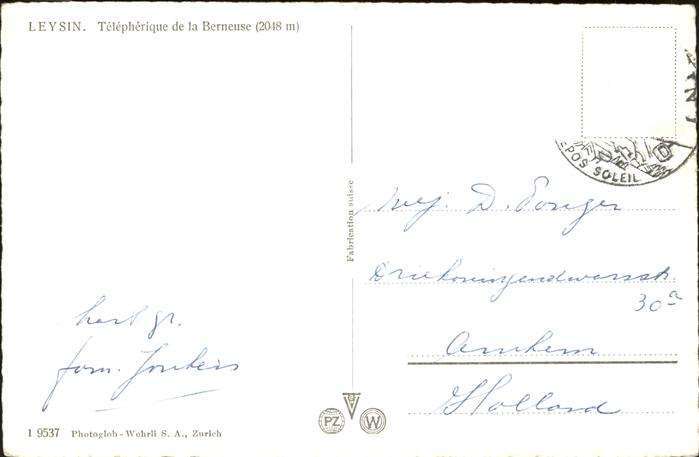 LEYSIN. Téléphérique de la Berneuse (2048 m)
EPOS SOLEIL
Fabrication suisse
Mej. D.
Driekoningendwarsstr.
30ᵃ
Arnhem
Holland
hart gr.
fam.
PZ W
1 9537 Photoglob-Wehrli S. A., Zurich